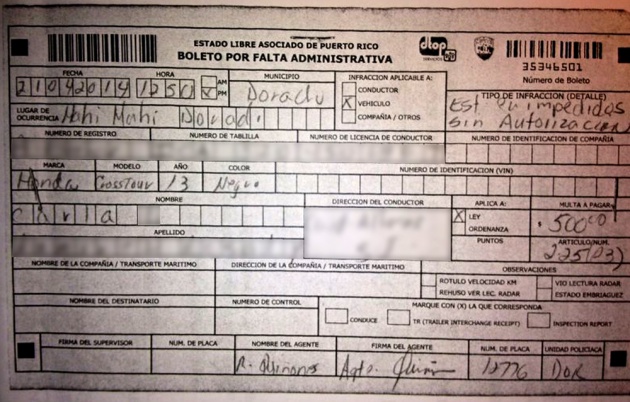 ESTADO LIBRE ASOCIADO DE PUERTO RICO
BOLETO POR FALTA ADMINISTRATIVA
dtop
35346501
Número de Boleto
FECHA HORA AM PM MUNICIPIO INFRACCION APLICABLE A: TIPO DE INFRACCION (DETALLE)
21042014 1250 X Dorado CONDUCTOR
X VEHICULO
COMPAÑIA / OTROS
Est. impedidos
sin Autorizacion
LUGAR DE OCURRENCIA Mahi Mahi Dorado
NUMERO DE REGISTRO NUMERO DE TABLILLA NUMERO DE LICENCIA DE CONDUCTOR NUMERO DE IDENTIFICACION DE COMPAÑIA
MARCA MODELO AÑO COLOR NUMERO DE IDENTIFICACION (VIN)
Honda Crosstour 13 Negro
NOMBRE DIRECCION DEL CONDUCTOR APLICA A: MULTA A PAGAR
Carla X LEY 500.00
ORDENANZA
APELLIDO PUNTOS ARTICULO/NUM.
225(03)
NOMBRE DE LA COMPAÑIA / TRANSPORTE MARITIMO DIRECCION DE LA COMPAÑIA / TRANSPORTE MARITIMO OBSERVACIONES
ROTULO VELOCIDAD KM VIO LECTURA RADAR
REHUSO VER LEC. RADAR ESTADO EMBRIAGUEZ
NOMBRE DEL DESTINATARIO NUMERO DE CONTROL MARQUE CON (X) LA QUE CORRESPONDA
CONDUCE TR (TRAILER INTERCHANGE RECEIPT) INSPECTION REPORT
FIRMA DEL SUPERVISOR NUM. DE PLACA NOMBRE DEL AGENTE FIRMA DEL AGENTE NUM. DE PLACA UNIDAD POLICIACA
R. Quinones Agte. 12776 DOR